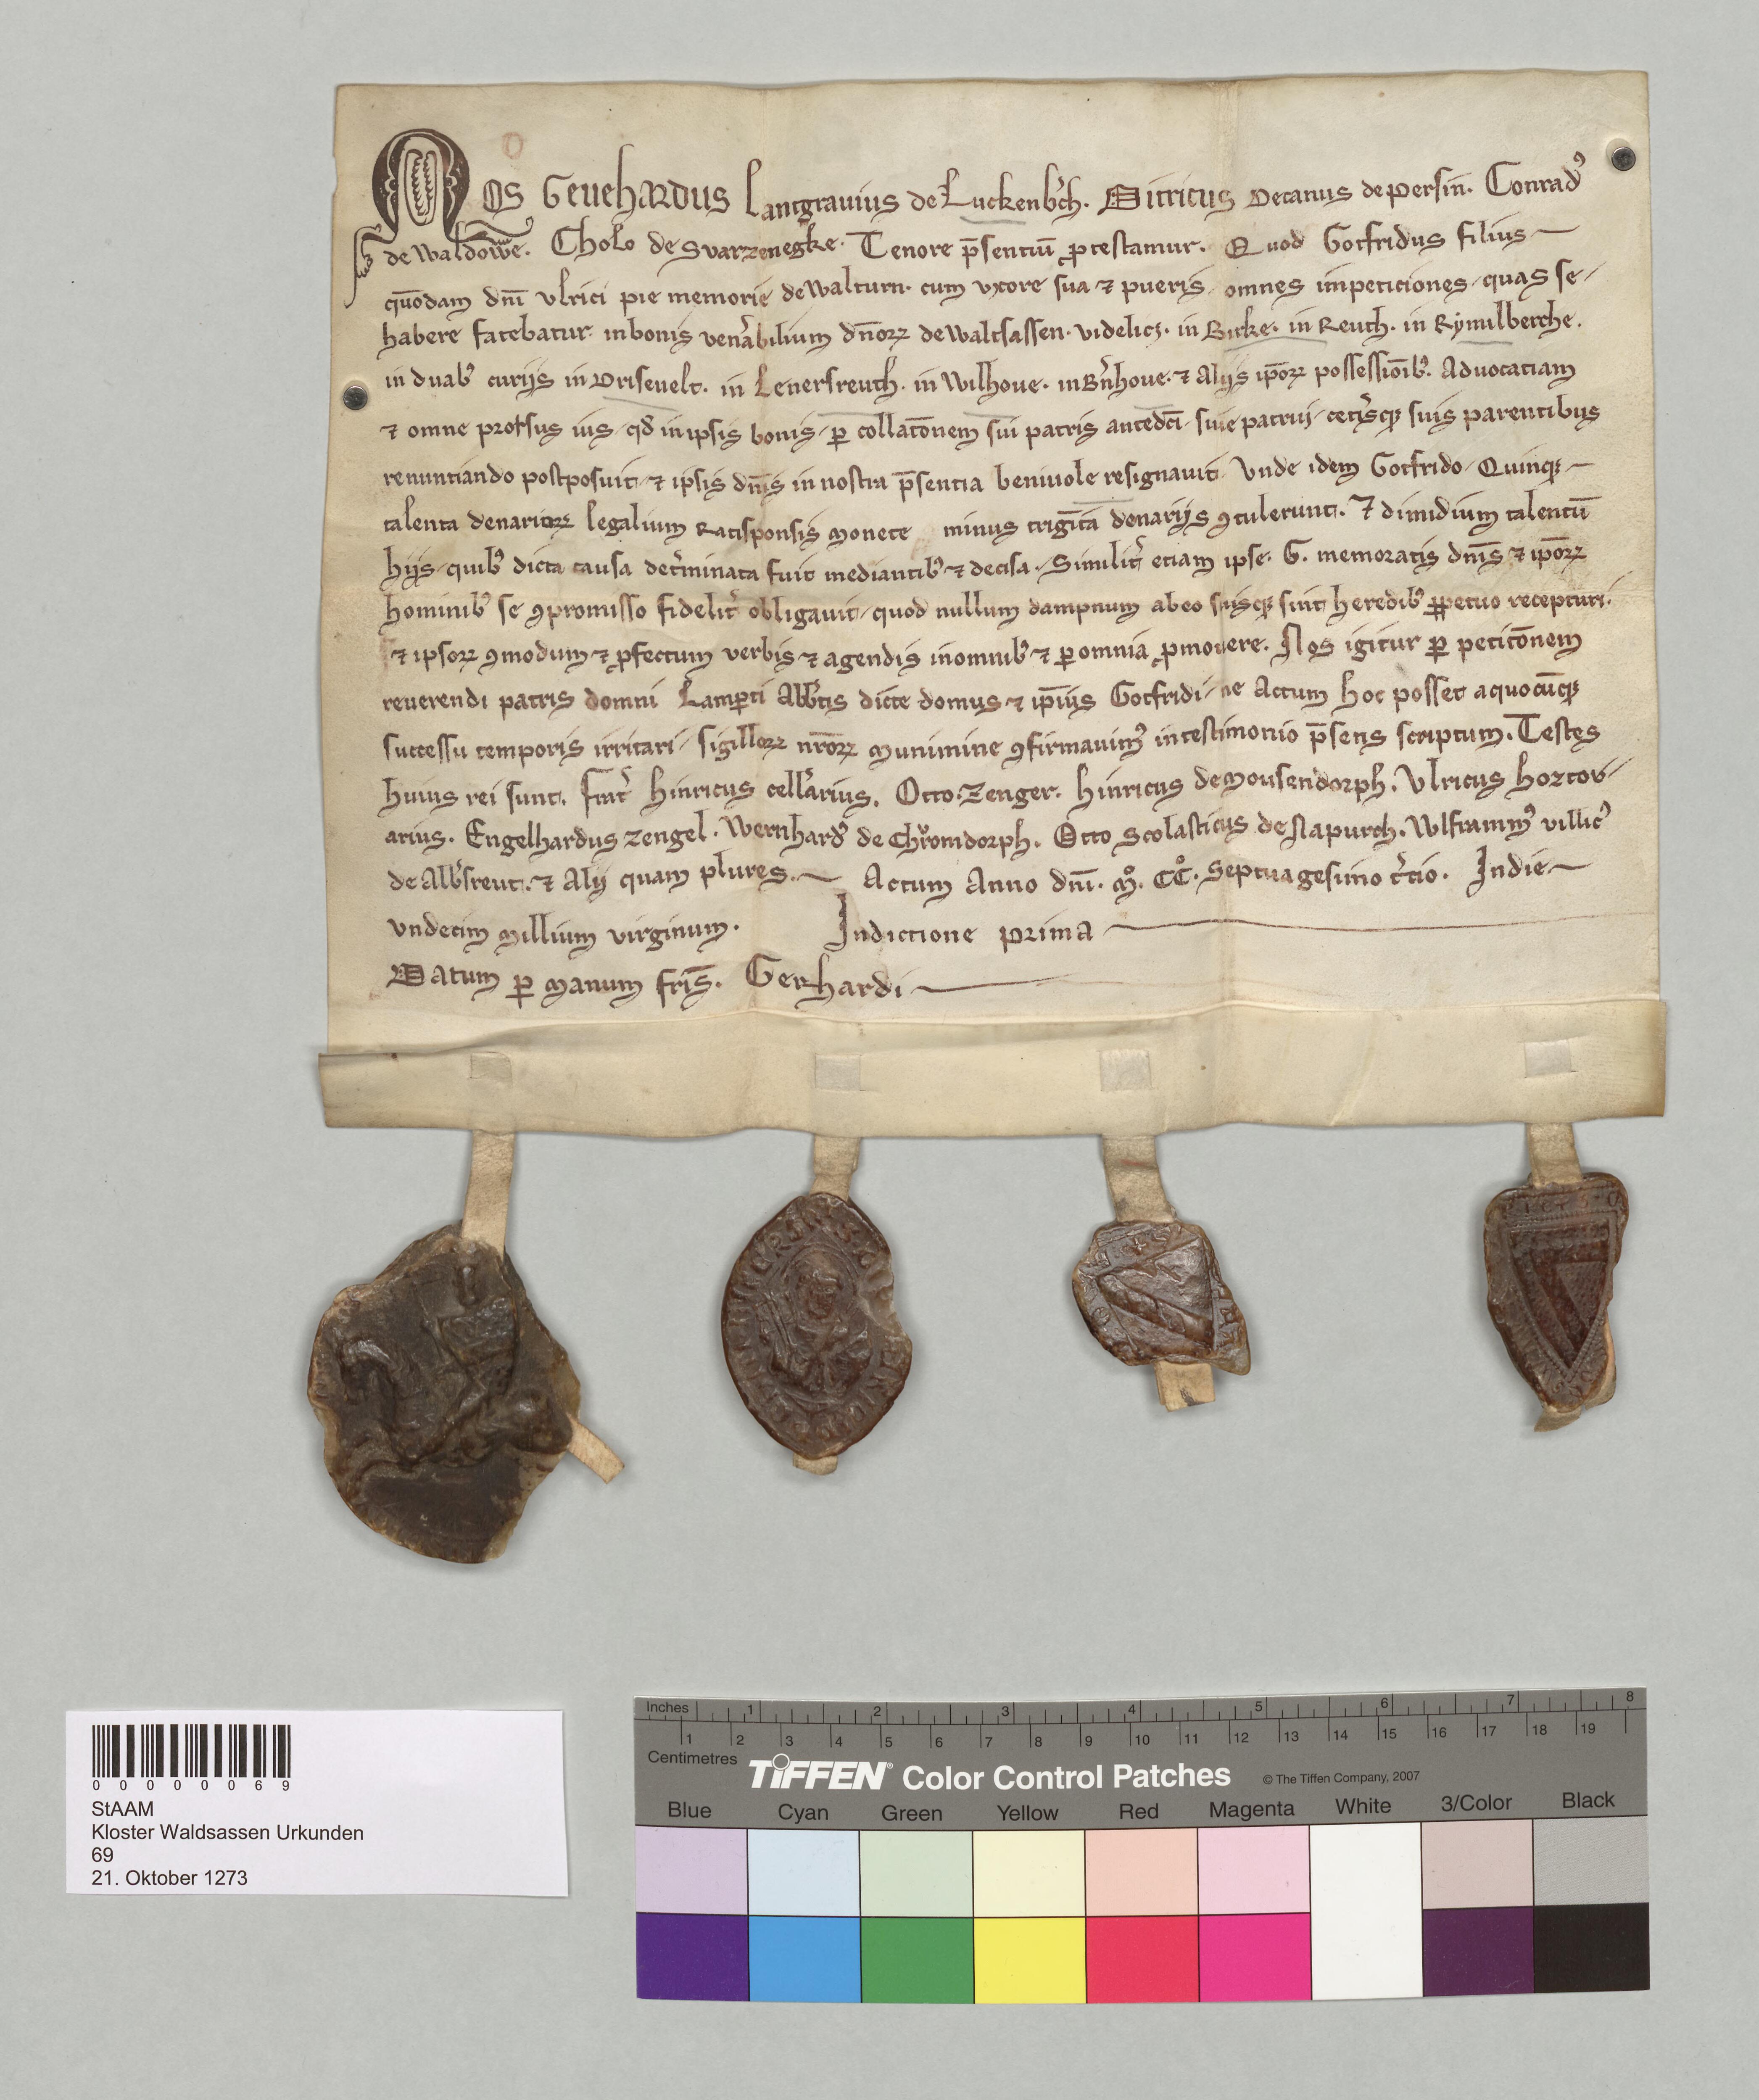 Nos Geuehardus Lantgrauius de Luckenb̉ch. Ditricus Decanus de persin̄. Conradꝰ
de Waldowe. Cholo de Svarzenegke. Tenore p̄sentiū ꝓtestamur. Quod Gotfridus filius
quōdam dn̄i vlrici pie memorie de Walturn. cum vxore sua ⁊ pueris. omnes impeticiones. quas se
habere fatebatur in bonis ven̉abilium dn̄oꝝ de Waltsassen. videlicꝫ. in Birke. in Reuth. in Rymilberche.
in duabꝰ curijs in Drisevelt. in Lenersreuth. in Wilhoue. in B̉nhoue. ⁊ Alijs ip̄oꝝ possessiōibꝰ. Aduocatiam
⁊ omne prorsus ius. qd̓ in ipsis bonis. ꝑ collatōnem sui patris anted̄ci. sui patrui. cet̉isqꝫ suis parentibus
renuntiando postposuit. ⁊ ipsis dn̄is in nostra p̄sentia beniuole resignauit. Vnde idem Gotfrido. Quinqꝫ
talenta denarioꝝ legalium Ratisponsis Monete minus trigīta denarijs ꝯtulerunt. ⁊ dimidium talentū
hijs. quibꝰ dicta causa det̉minata fuit mediantibꝰ ⁊ decisa. Similit̉ etiam ipse. G. memoratis dn̄is ⁊ ip̄oꝝ
hominibꝰ se ꝯpromisso fidelit̉ obligauit. quod nullum dampnum ab eo suisqꝫ sint heredibꝰ ꝑpetuo recepturi.
⁊ ipsoꝝ ꝯmodum ⁊ ꝓfectum verbis ⁊ agendis in omnibꝰ ⁊ ꝑ omnia ꝓmouere. Nos igitur ꝑ petitōnem
reuerendi patris domni Lamꝑti Abb̄tis dicte domus ⁊ ip̄ius Gotfridi. ne Actum hoc posset a quocūqꝫ
successu temporis irritari. sigilloꝝ nr̄oꝝ munimine ꝯfirmauimꝰ in testimonio p̄sens scriptum. Testes
huius rei sunt. frat̉ Hinricus cell̉arius. Otto. Zenger. Hinricus de Mousendorph. Vlricus Hoztov
arius. Engelhardus Zengel. Wernhardꝰ de Chromdorph. Otto Scolasticus de Napurch. Wlframmꝰ villicꝰ
de Alb̉sreut. ⁊ Alij quam plures. Actum Anno dn̄i. M̊. CC̊. Septuagesimo t̉cio. In die
vndecim Millium virginum. Indictione prima
Datum ꝑ Manum fr̄is. Gerhardi
00000069
StAAM
Kloster Waldsassen Urkunden
69
21. Oktober 1273
Inches 1 2 3 4 5 6 7 8
1 2 3 4 5 6 7 8 9 10 11 12 13 14 15 16 17 18 19
Centimetres
TIFFEN® Color Control Patches © The Tiffen Company, 2007
Blue Cyan Green Yellow Red Magenta White 3/Color Black